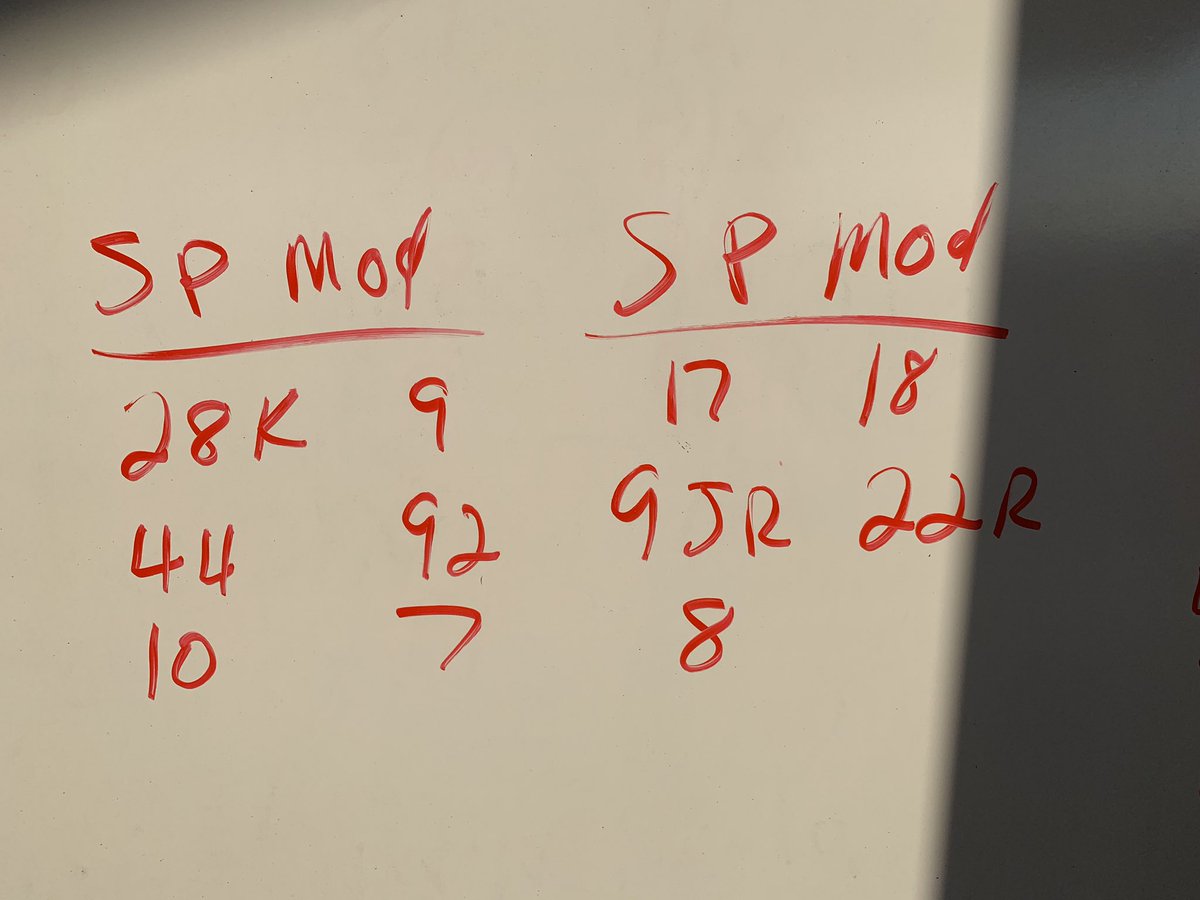 SP Mod SP Mod
28K 9 17 18
44 92 9JR 22R
10 7 8